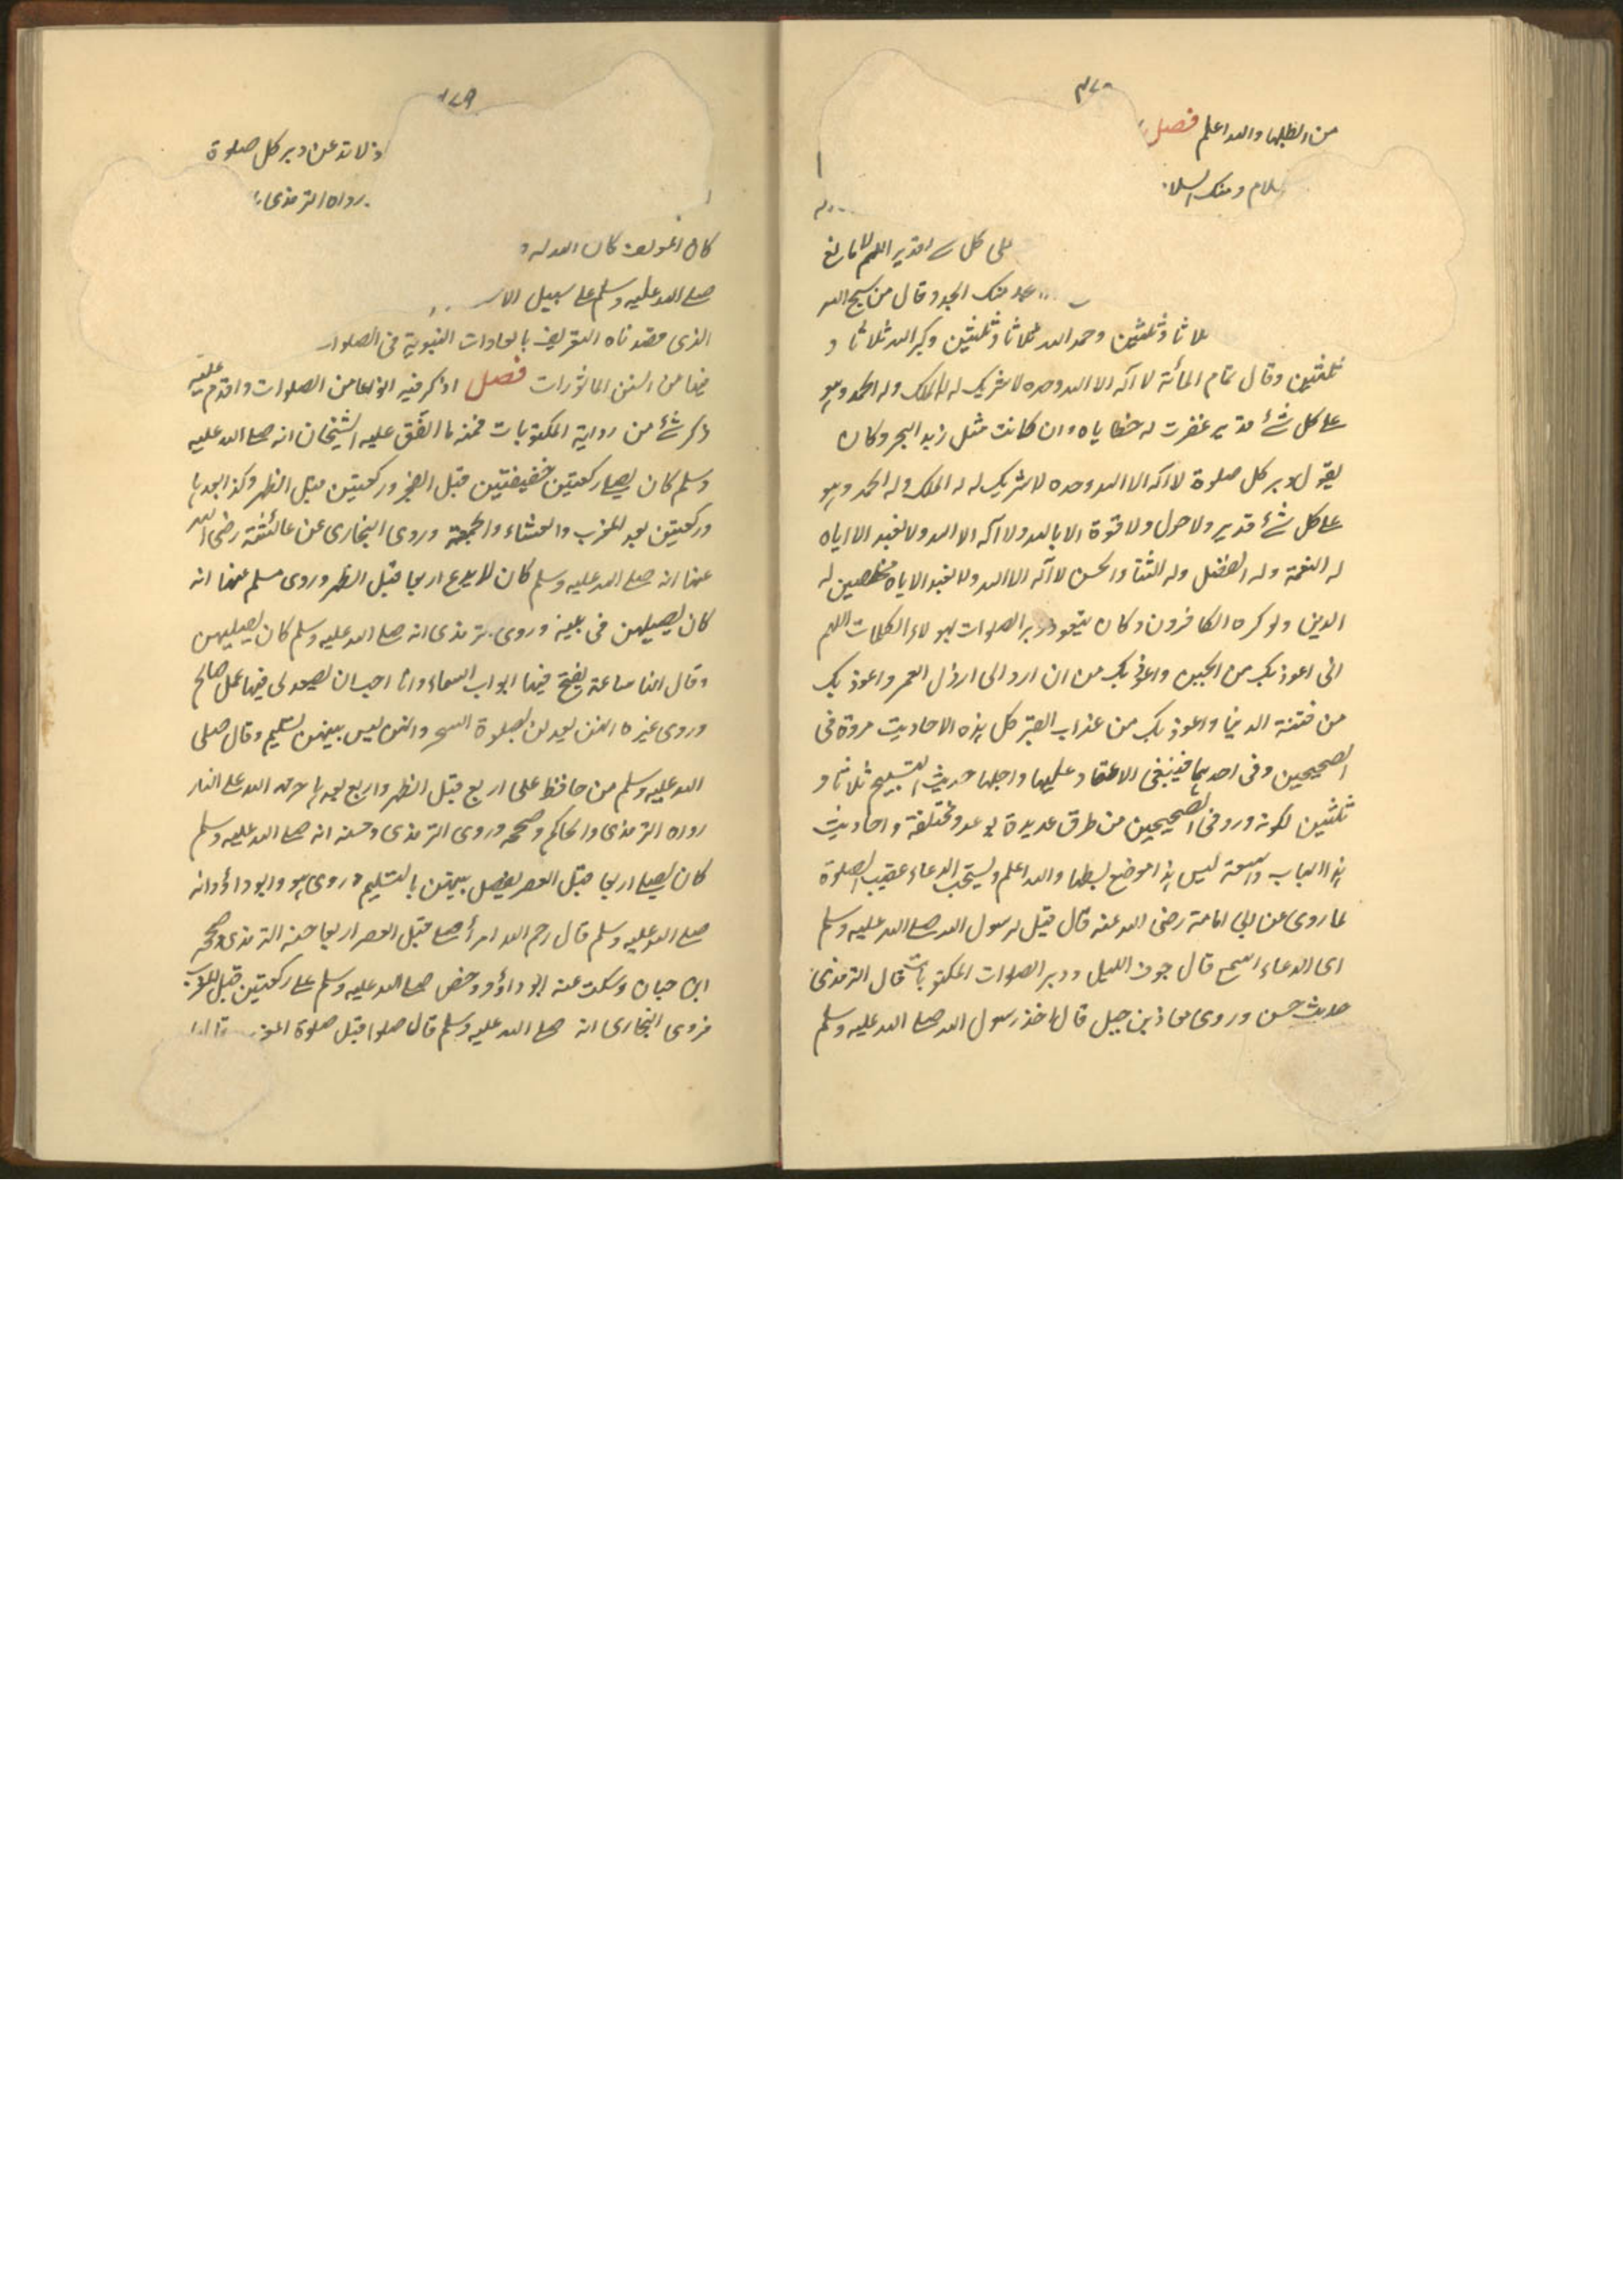 ٤٧٠
من الظلها والله اعلم فصل
سلام ومنك السلا
على كل شے قدير اللهم لا مانع
منك الجد وقال من سبح الله
ثلاثا وثلثين وحمد الله ثلاثا وثلثين وكبر الله ثلاثا و
ثلثين وقال تمام المائة لا اله الا الله وحده لا شريك له له الملك وله الحمد وهو
على كل شئ قدير غفرت له خطاياه وان كانت مثل زبد البحر وكان
يقول دبر كل صلوة لا اله الا الله وحده لا شريك له له الملك وله الحمد وهو
على كل شئ قدير ولا حول ولا قوة الا بالله ولا اله الا الله ولا نعبد الا اياه
له النعمة وله الفضل وله الثنا والحسن لا اله الا الله ولا نعبد الا اياه مخلصين له
الدين ولو كره الكافرون وكان يتعوذ دبر الصلوات بهولاء الكلمات اللهم
انى اعوذ بك من الجبن واعوذ بك من ان ارد الى ارذل العمر واعوذ بك
من فتنة الدنيا واعوذ بك من عذاب القبر كل هذه الاحاديث مروة فى
الصحيحين وفى احدهما فينبغى الاعتماد عليها واجلها حديث التسبيح ثلاثا و
ثلثين لكونه ورد فى الصحيحين من طرق عديدة بوعد ومختلفة واحاديث
هذا الباب واسعة ليس هذا موضع لبسطها والله اعلم ويستحب الدعاء عقيب الصلوة
لما روى عن ابى امامة رضى الله عنه قال قيل لرسول الله صلے الله عليه وسلم
اى الدعاء اسمع قال جوف الليل ودبر الصلوات المكتوبات قال الترمذى
حديث حسن وروى معاذ بن جبل قال اخذ رسول الله صلے الله عليه وسلم
٤٧١
لا تدعن دبر كل صلوة
رواه الترمذى
كان الله له
صلے الله عليه وسلم على سبيل
الذى قصدناه التعريف بالعادات النبوية فى الصلوات
فيها من السنن الماثورات فصل اذكر فيه انواعا من الصلوات واقدم عليه
ذكر شئ من رواية المكتوبات فمنه ما اتفق عليه الشيخان انه صلے الله عليه
وسلم كان يصلے ركعتين خفيفتين قبل الفجر وركعتين قبل الظهر وكذا بعدها
وركعتين بعد المغرب والعشاء والجمعة وروى البخارى عن عائشة رضى الله
عنها انه صلے الله عليه وسلم كان لا يدع اربعا قبل الظهر وروى مسلم عنها انه
كان يصليهن فى بيته وروى ترمذى انه صلے الله عليه وسلم كان يصليهن
وقال انها ساعة يفتح فيها ابواب السماء وانا احب ان يصعد لى فيها عمل صالح
وروى غيره انهن يعدلن بصلوة السحر وانهن ليس بينهن تسليم وقال صلى
الله عليه وسلم من حافظ على اربع قبل الظهر واربع بعدها حرمه الله على النار
رواه الترمذى والحاكم وصححه وروى الترمذى وحسنه انه صلے الله عليه وسلم
كان يصلے اربعا قبل العصر يفصل بينهن بالتسليم وروى هو وابو داؤد انه
صلے الله عليه وسلم قال رحم الله امرأ صلے قبل العصر اربعا حسنه الترمذى وصححه
ابن حبان وسكت عنه ابو داؤد وحض صلے الله عليه وسلم على ركعتين قبل المغرب
فروى البخارى انه صلے الله عليه وسلم قال صلوا قبل صلوة